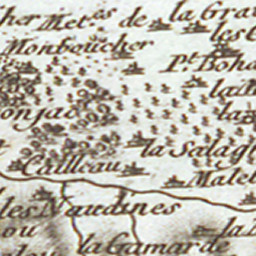 cher Met.es de la Gra
Monboucher les
P.t Boha
la
onjac la
la Salag
Cailleau Malet
les Naudines
ou la
la Gamarde